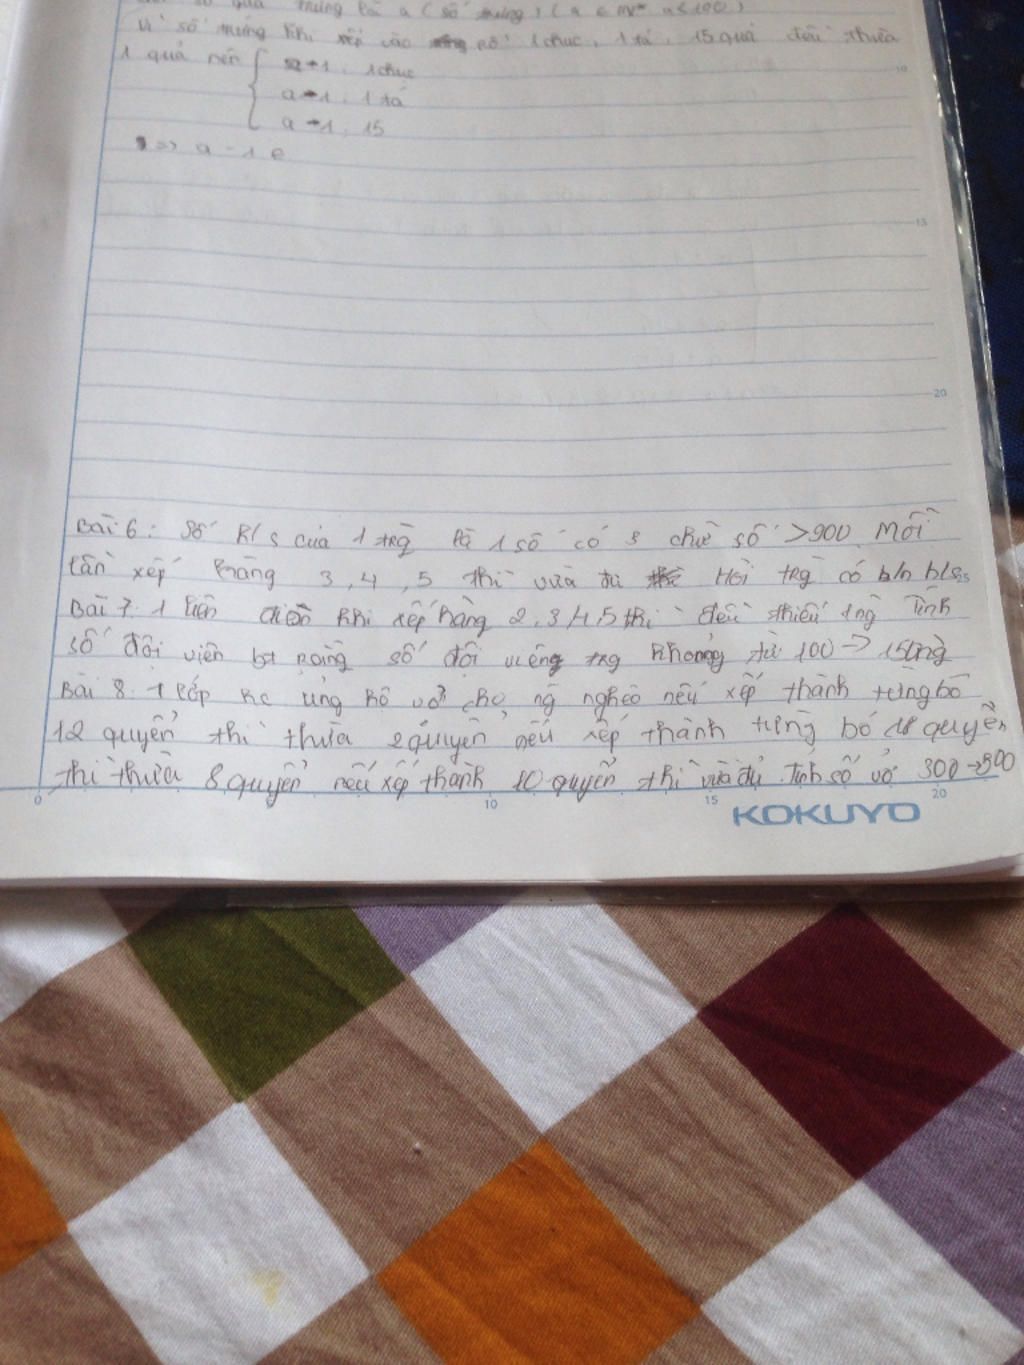 số quả trứng là a (số trứng) (a ∈ N* a<100)
Vì số trứng khi xếp vào rổ 1 chục, 1 tá, 15 quả đều thừa
10
1 quả nên { a-1 : 1 chục
a-1 : 1 tá
a-1 : 15
=> a-1 e
15
20
Bài 6: Số h/s của 1 trg là 1 số có 3 chữ số >900 Mỗi
lần xếp hàng 3, 4, 5 thì vừa đủ Hỏi trg có b/n h/s
25
Bài 7. 1 liên đội khi xếp hàng 2, 3, 4, 5 thì đều thiếu 1 ng Tính
số đội viên bt rằng số đội viên trg khoảng từ 100 -> 150 ng
Bài 8. 1 lớp hs ủng hộ vở cho ng nghèo nếu xếp thành từng bó
12 quyển thì thừa 2 quyển nếu xếp thành từng bó 18 quyển
thì thừa 8 quyển nếu xếp thành 10 quyển thì vừa đủ. Tính số vở 300->500
0 10 15 20
KOKUYO